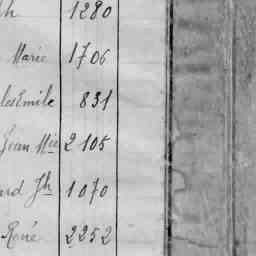 h 1280
Marie 1706
les Emile 831
Jean Mie 2105
ard Jh 1070
René 2252